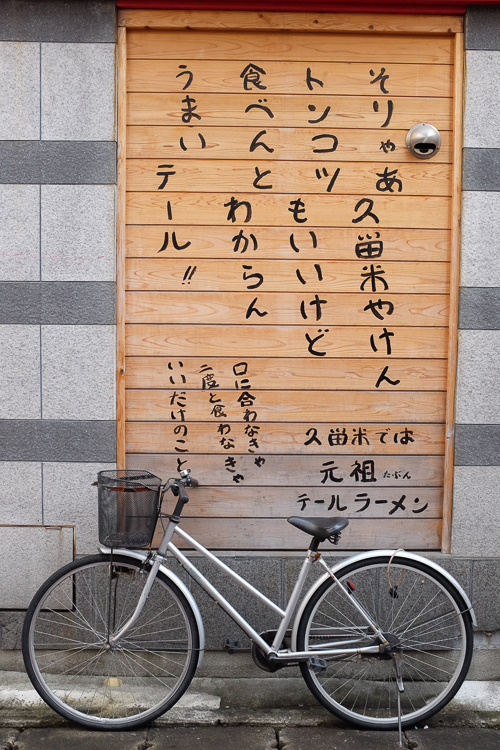 そりゃあ久留米やけん
トンコツもいいけど
食べんとわからん
うまいテール!!
口に合わなきゃ
二度と食わなきゃ
いいだけのこと
久留米では
元祖たぶん
テールラーメン